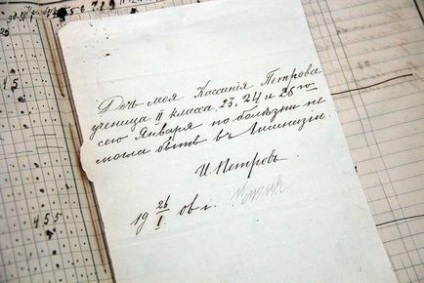 Дочь моя Кассинія Петрова
ученица II класса, 23, 24 и 25го
сего Января по болѣзни не
могла быть въ Гимназіи.
И. Петровъ.
19 26/I 06 г.
455